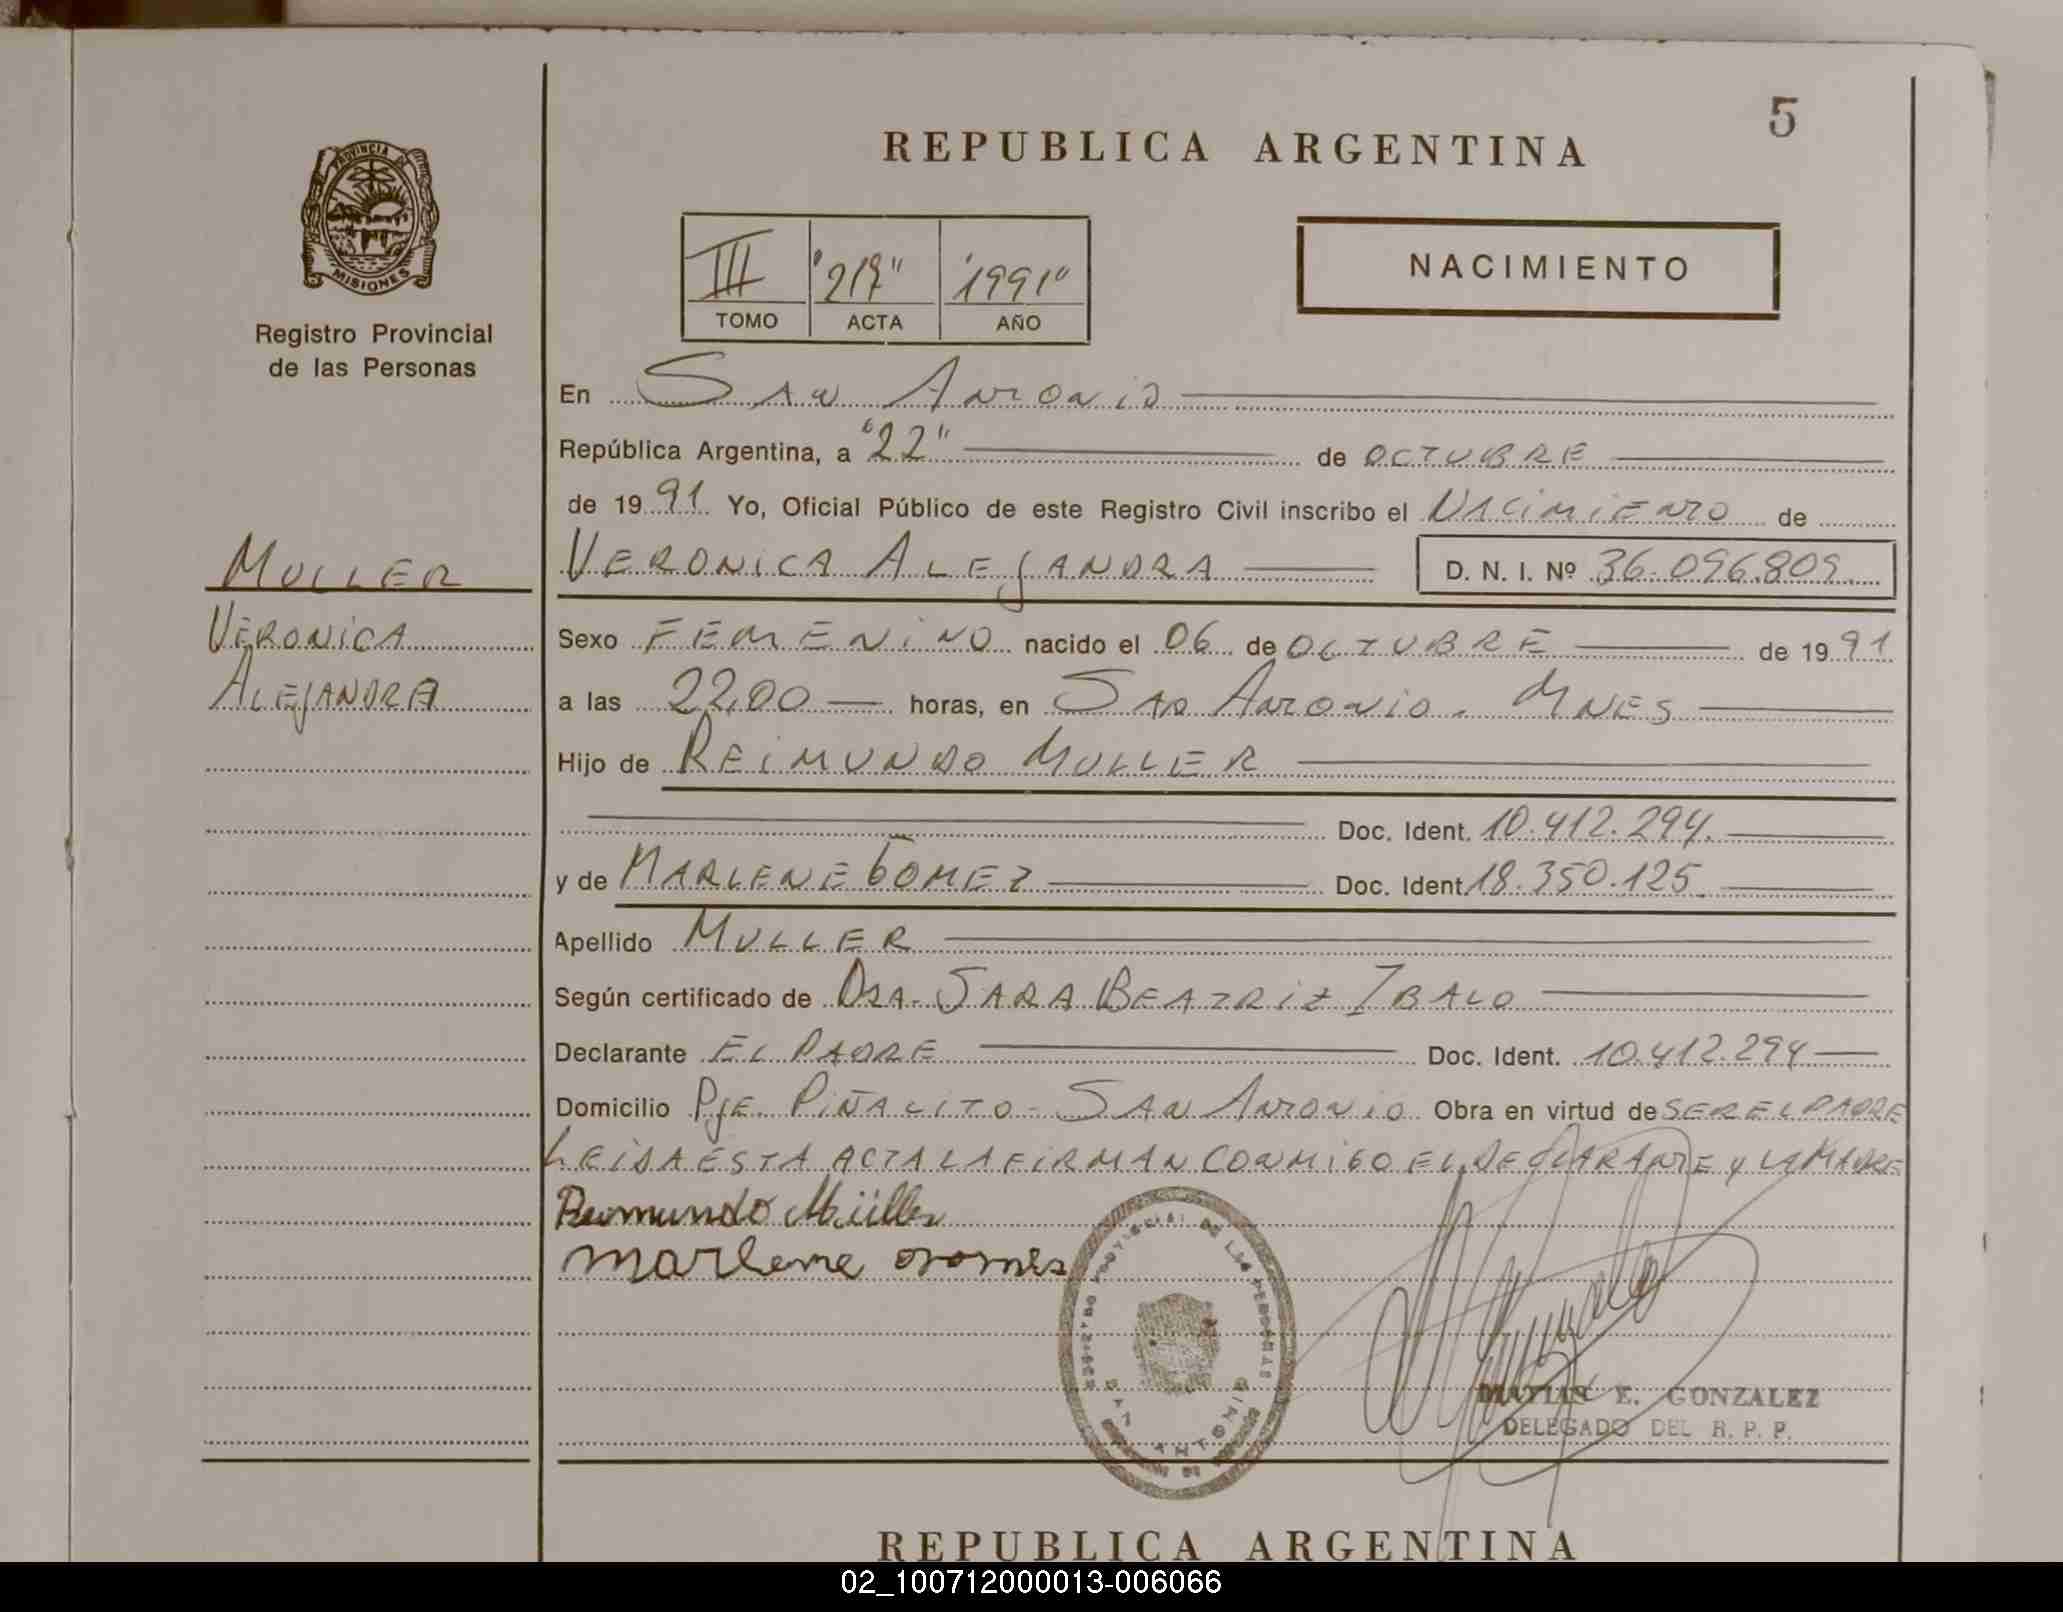 5
REPUBLICA ARGENTINA
PROVINCIA DE
MISIONES
Registro Provincial
de las Personas
III "217" "1991"
TOMO ACTA AÑO
NACIMIENTO
En San Antonio
República Argentina, a "22" de OCTUBRE
de 1991 Yo, Oficial Público de este Registro Civil inscribo el NACIMIENTO de
MULLER
VERONICA ALEJANDRA D. N. I. Nº 36.096.809
VERONICA
ALEJANDRA
Sexo FEMENINO nacido el 06 de OCTUBRE de 1991
a las 22,00 horas, en SAN ANTONIO. MNES
Hijo de REIMUNDO MULLER
Doc. Ident. 10.412.294.
y de MARLENE GOMEZ Doc. Ident. 18.350.125
Apellido MULLER
Según certificado de DRA. SARA BEATRIZ IBALO
Declarante EL PADRE Doc. Ident. 10.412.294
Domicilio PJE. PIÑALITO - SAN ANTONIO Obra en virtud de SER EL PADRE
LEIDA ESTA ACTA LA FIRMAN CONMIGO EL DECLARANTE Y LA MADRE
Reimundo Müller
marlene gomes
REGISTRO PROVINCIAL DE LAS PERSONAS
SAN ANTONIO
MATIAS E. GONZALEZ
DELEGADO DEL R. P. P.
REPUBLICA ARGENTINA
02_100712000013-006066